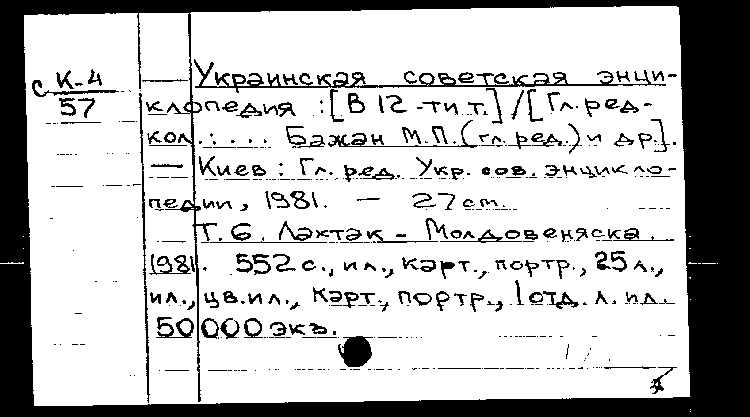 с К-4
57
Украинская советская энци-
клопедия : [В 12 -ти т.] / [Гл. ред-
кол.: ... Бажан М.П. (гл. ред.) и др.].
— Киев : Гл. ред. Укр. сов. энцикло-
педии, 1981. — 27 cm.
Т. 6. Лахтак - Молдовеняска.
1981. 552 с., ил., карт., портр., 25 л.,
ил., цв. ил., карт., портр., 1 отд. л. ил.
50 000 экз.